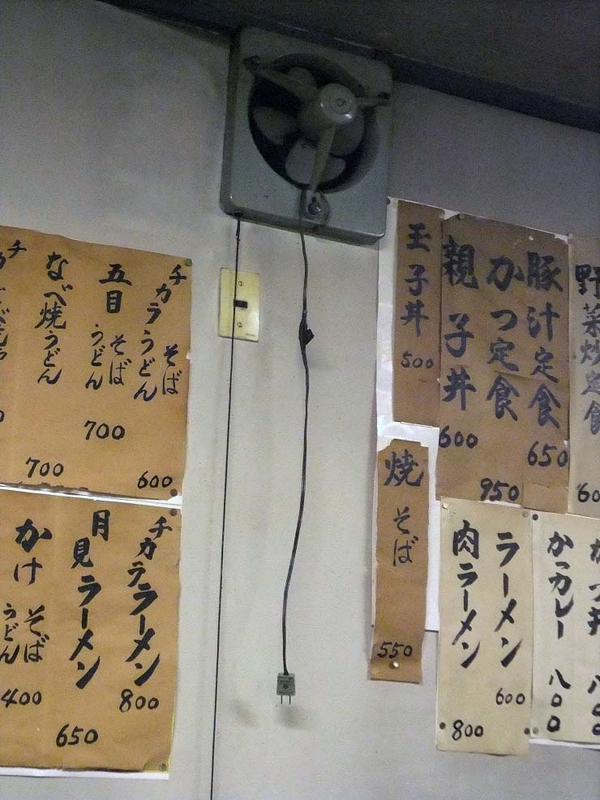 野菜炒定食
60
豚汁定食 650
かつ定食 950
親子丼 600
玉子丼 500
焼そば 550
かつ丼 八〇〇
かつカレー 八〇〇
ラーメン 600
肉ラーメン 800
チカラうどん そば 600
五目うどん そば 700
なべ焼うどん 700
チカララーメン 800
月見ラーメン 650
かけうどん そば 400